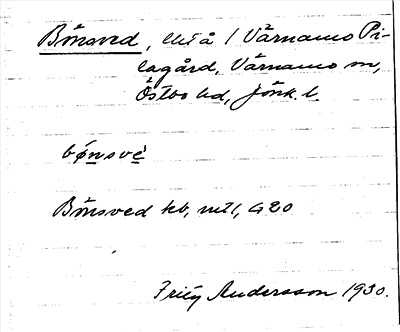 Bönsved, lht å / Värnamo Pi-
lagård, Värnamo sn,
Östbo hd, Jönk. l.
bǿnsvè
Bönsved hb, mtl, G20
Fritz Andersson 1930.